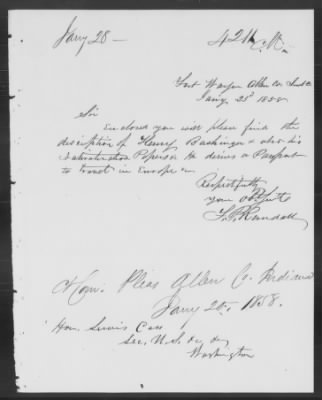 Jany 28 —
Fort Wayne Allen Co Inda
Jany 25th 1858
Sir
Enclosed you will please find the
discription of Henry & also his
Papers. He desires a Passport
to travel in Europe
Respectfully
your Obt
F. P. Randall
Com. Pleas Allen Co. Indiana
Jany 25, 1858.
Hon. Lewis Cass
Sec. U.S.
Washington